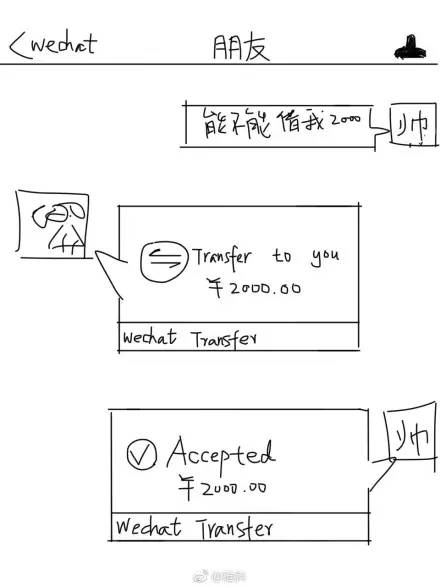 <wechat 朋友
能不能借我2000
帅
Transfer to you
¥2000.00
wechat Transfer
帅
Accepted
¥2000.00
Wechat Transfer